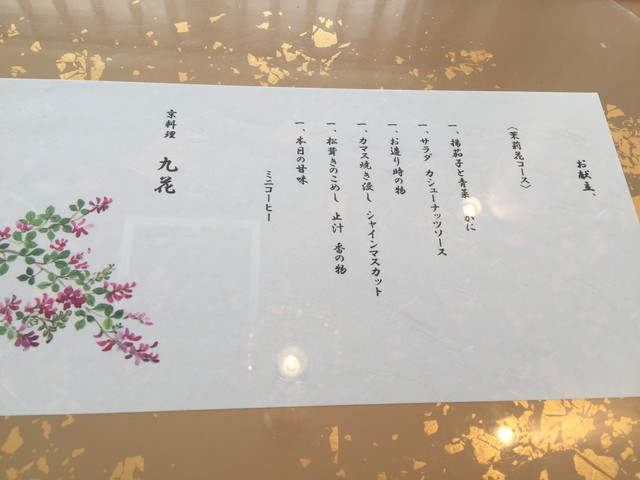 お献立、
〈茉莉花コース〉
一、揚茄子と青菜 かに
一、サラダ カシューナッツソース
一、お造り時の物
一、カマス焼き浸し シャインマスカット
一、松茸きのこめし 止汁 香の物
一、本日の甘味
ミニコーヒー
京料理 九花